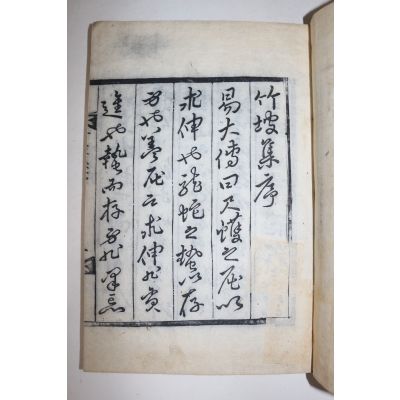 竹坡集序
易大傳曰尺蠖之屈以
求伸也龍蛇之蟄以存
身也盖屈之求伸非貪
進也蟄而存身非